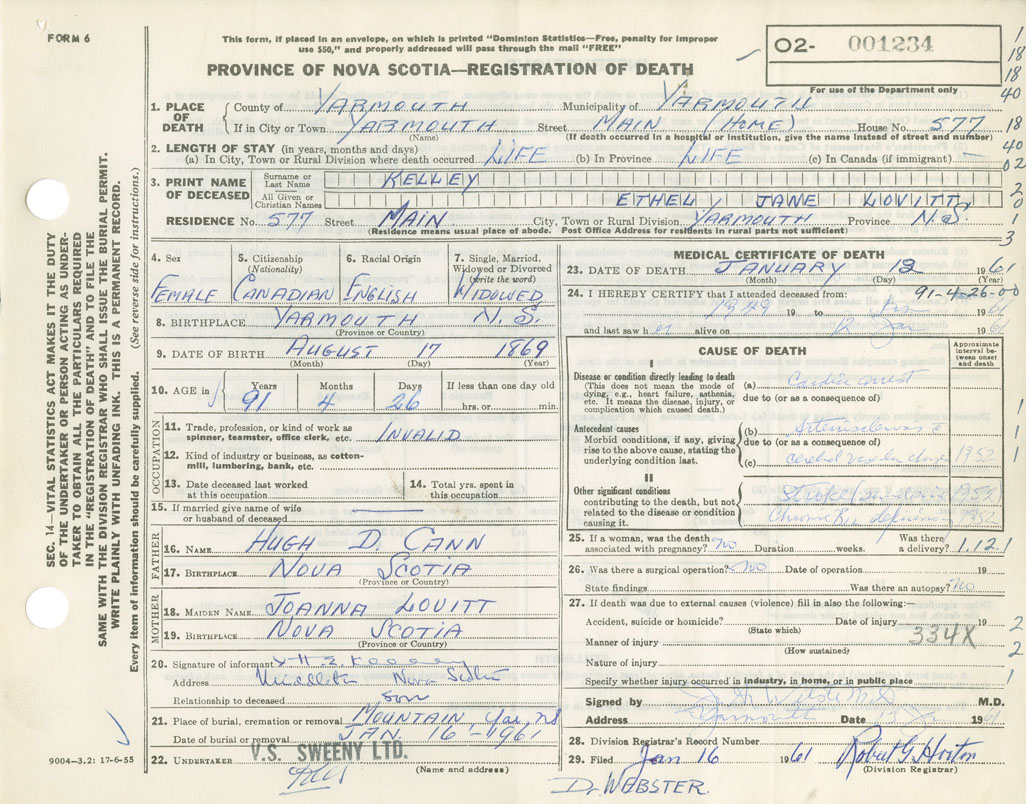 FORM 6
This form, if placed in an envelope, on which is printed "Dominion Statistics—Free, penalty for improper
use $50," and properly addressed will pass through the mail "FREE"
PROVINCE OF NOVA SCOTIA—REGISTRATION OF DEATH
O2- 001234
For use of the Department only
SEC. 14—VITAL STATISTICS ACT MAKES IT THE DUTY
OF THE UNDERTAKER OR PERSON ACTING AS UNDER-
TAKER TO OBTAIN ALL THE PARTICULARS REQUIRED
IN THE "REGISTRATION OF DEATH" AND TO FILE THE
SAME WITH THE DIVISION REGISTRAR WHO SHALL ISSUE THE BURIAL PERMIT.
WRITE PLAINLY WITH UNFADING INK. THIS IS A PERMANENT RECORD.
Every item of information should be carefully supplied. (See reverse side for instructions.)
1. PLACE OF DEATH
County of YARMOUTH Municipality of YARMOUTH
If in City or Town YARMOUTH Street MAIN (HOME) House No. 577
(Name) (If death occurred in a hospital or institution, give the name instead of street and number)
2. LENGTH OF STAY (in years, months and days)
(a) In City, Town or Rural Division where death occurred LIFE (b) In Province LIFE (c) In Canada (if immigrant) —
3. PRINT NAME OF DECEASED
Surname or Last Name KELLEY
All Given or Christian Names ETHEL JANE LOVITT
RESIDENCE No. 577 Street MAIN City, Town or Rural Division YARMOUTH Province N.S.
(Residence means usual place of abode. Post Office Address for residents in rural parts not sufficient)
4. Sex
FEMALE
5. Citizenship
(Nationality)
CANADIAN
6. Racial Origin
ENGLISH
7. Single, Married,
Widowed or Divorced
(write the word)
WIDOWED
8. BIRTHPLACE YARMOUTH N.S.
(Province or Country)
9. DATE OF BIRTH AUGUST 17 1869
(Month) (Day) (Year)
10. AGE in
Years Months Days If less than one day old
91 4 26 hrs. or min.
OCCUPATION
11. Trade, profession, or kind of work as
spinner, teamster, office clerk, etc. INVALID
12. Kind of industry or business, as cotton-
mill, lumbering, bank, etc.
13. Date deceased last worked
at this occupation
14. Total yrs. spent in
this occupation
15. If married give name of wife
or husband of deceased
FATHER
16. NAME HUGH D. CANN
17. BIRTHPLACE NOVA SCOTIA
(Province or Country)
MOTHER
18. MAIDEN NAME JOANNA LOVITT
19. BIRTHPLACE NOVA SCOTIA
(Province or Country)
20. Signature of informant
Address Middleton Nova Scotia
Relationship to deceased son
21. Place of burial, cremation or removal MOUNTAIN, Yar, NS
Date of burial or removal JAN. 16 - 1961
22. UNDERTAKER V.S. SWEENY LTD.
(Name and address)
9004—3.2: 17-6-55
MEDICAL CERTIFICATE OF DEATH
23. DATE OF DEATH JANUARY 12 1961
(Month) (Day) (Year)
24. I HEREBY CERTIFY that I attended deceased from: 91-4-26-00
1949 19 to Jan 1961
and last saw her alive on 12 Jan 1961
CAUSE OF DEATH
Approximate
interval be-
tween onset
and death
I
Disease or condition directly leading to death
(This does not mean the mode of
dying, e.g., heart failure, asthenia,
etc. It means the disease, injury, or
complication which caused death.)
(a) Cardiac arrest
due to (or as a consequence of)
Antecedent causes
Morbid conditions, if any, giving
rise to the above cause, stating the
underlying condition last.
(b)
due to (or as a consequence of)
(c) cerebral vascular 1952
II
Other significant conditions
contributing to the death, but not
related to the disease or condition
causing it.
Stroke 1952
Chronic 1952
25. If a woman, was the death
associated with pregnancy? no Duration weeks. Was there
a delivery? 1.12 1
26. Was there a surgical operation? No Date of operation 19
State findings Was there an autopsy? No
27. If death was due to external causes (violence) fill in also the following:—
Accident, suicide or homicide? Date of injury 19
(State which)
Manner of injury 334X
(How sustained)
Nature of injury
Specify whether injury occurred in industry, in home, or in public place
Signed by M.D.
Address Yarmouth Date 13 Jan 1961
28. Division Registrar's Record Number
29. Filed Jan 16 1961 Robert G. Horton
(Division Registrar)
Dr WEBSTER.
1
18
18
40
18
40
02
2
0
1
3
1
1
1
2
2
1